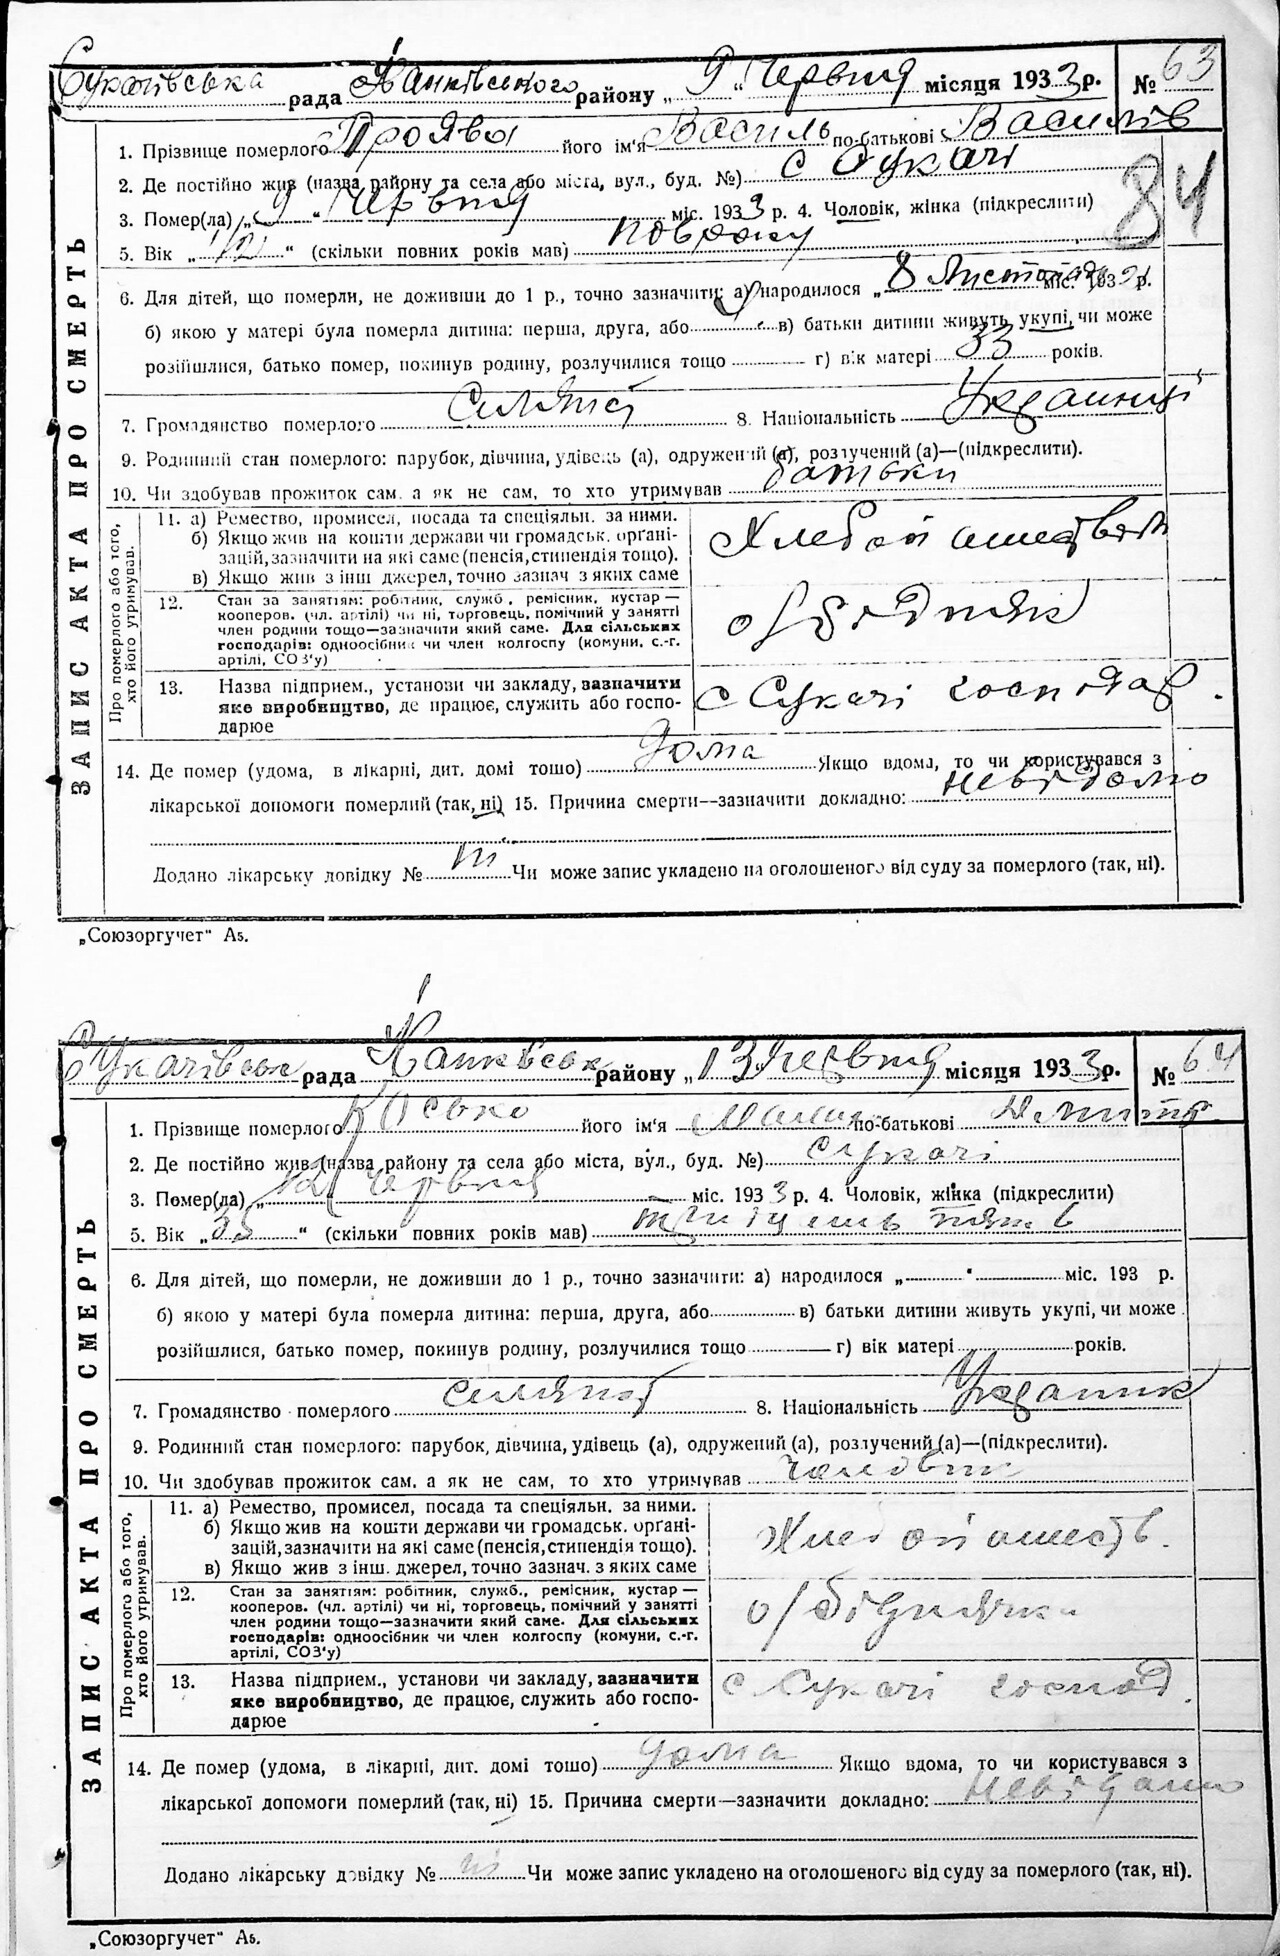 Сукачівська рада Іванківського району „ 9 “ Червня місяця 1933 р. № 63
ЗАПИС АКТА ПРО СМЕРТЬ
1. Прізвище померлого Проява його ім'я Василь по-батькові Василів
2. Де постійно жив (назва району та села або міста, вул., буд. №) с Сукачі
84
3. Помер(ла) „ 9 “ Червня міс. 1933 р. 4. Чоловік, жінка (підкреслити)
5. Вік „ 1/2 “ (скільки повних років мав) пов року
6. Для дітей, що померли, не доживши до 1 р., точно зазначити: а) народилося „ 8 Листопада міс. 1932 р.
б) якою у матері була померла дитина: перша, друга, або в) батьки дитини живуть укупі, чи може
розійшлися, батько помер, покинув родину, розлучилися тощо г) вік матері 33 років.
7. Громадянство померлого 8. Національність Украинці
9. Родинний стан померлого: парубок, дівчина, удівець (а), одружений (а), розлучений (а)—(підкреслити).
10. Чи здобував прожиток сам, а як не сам, то хто утримував батьки
Про померлого або того, хто його утримував.
11. а) Ремество, промисел, посада та спеціяльн. за ними.
б) Якщо жив на кошти держави чи громадськ. орґані-
зацій, зазначити на які саме (пенсія, стипендія тощо).
в) Якщо жив з інш джерел, точно зазнач з яких саме
12. Стан за занятіям: робітник, служб., ремісник, кустар—
кооперов. (чл. артілі) чи ні, торговець, помічний у занятті
член родини тощо—зазначити який саме. Для сільських
господарів: одноосібник чи член колгоспу (комуни, с.-г.
артілі, СОЗ'у)
о/бідняк
13. Назва підприєм., установи чи закладу, зазначити
яке виробництво, де працює, служить або госпо-
дарює
с Сукачі господар
14. Де помер (удома, в лікарні, дит. домі тощо) дома Якщо вдома, то чи користувався з
лікарської допомоги померлий (так, ні) 15. Причина смерти—зазначити докладно: невідомо
Додано лікарську довідку № ні Чи може запис укладено на оголошеного від суду за померлого (так, ні).
„Союзоргучет“ А5.
Сукачівськ рада Іванківськ району „ 13 червня місяця 1933 р. № 64
ЗАПИС АКТА ПРО СМЕРТЬ
1. Прізвище померлого Косько його ім'я по-батькові Дмитр.
2. Де постійно жив (назва району та села або міста, вул., буд. №) Сукачі
3. Помер(ла) „ 12 Червня міс. 1933 р. 4. Чоловік, жінка (підкреслити)
5. Вік „ 35 “ (скільки повних років мав) тридцять пять
6. Для дітей, що померли, не доживши до 1 р., точно зазначити: а) народилося „ міс. 193 р.
б) якою у матері була померла дитина: перша, друга, або в) батьки дитини живуть укупі, чи може
розійшлися, батько помер, покинув родину, розлучилися тощо г) вік матері років.
7. Громадянство померлого 8. Національність Украинк
9. Родинний стан померлого: парубок, дівчина, удівець (а), одружений (а), розлучений (а)—(підкреслити).
10. Чи здобував прожиток сам, а як не сам, то хто утримував чоловік
Про померлого або того, хто його утримував.
11. а) Ремество, промисел, посада та спеціяльн. за ними.
б) Якщо жив на кошти держави чи громадськ. орґані-
зацій, зазначити на які саме (пенсія, стипендія тощо).
в) Якщо жив з інш. джерел, точно зазнач. з яких саме
12. Стан за занятіям: робітник, служб., ремісник, кустар—
кооперов. (чл. артілі) чи ні, торговець, помічний у занятті
член родини тощо—зазначити який саме. Для сільських
господарів: одноосібник чи член колгоспу (комуни, с.-г.
артілі, СОЗ'у)
о/біднячка
13. Назва підприєм., установи чи закладу, зазначити
яке виробництво, де працює, служить або госпо-
дарює
с Сукачі господ.
14. Де помер (удома, в лікарні, дит. домі тощо) дома Якщо вдома, то чи користувався з
лікарської допомоги померлий (так, ні) 15. Причина смерти—зазначити докладно: невідомо
Додано лікарську довідку № ні Чи може запис укладено на оголошеного від суду за померлого (так, ні).
„Союзоргучет“ А5.